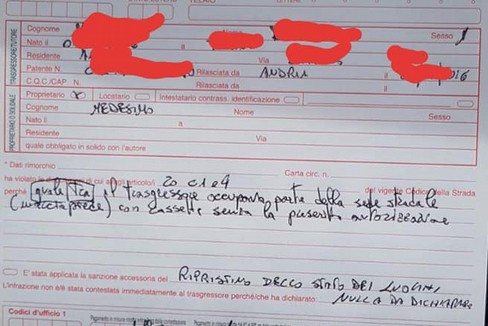 Cognome Nome Sesso
Nato il il
Residente Via
Patente N. Rilasciata da ANDRIA
C.Q.C./CAP. N. Rilasciata da
Proprietario X Locatario Intestatario contrass. identificazione
Cognome MEDESIMO Nome
Nato il il Sesso
Residente Via
quale obbligato in solido con l'autore
TRASGRESSORE/TUTORE
PROPRIETARIO O SOLIDALE
* Dati rimorchio Carta circ. n.
ha violato di cui agli articolo/i 20 c1 e 4 del vigente Codice della Strada
perché quale il trasgressore occupava parte della sede stradale
con cassette senza la autorizzazione
E' stata applicata la sanzione accessoria del RIPRISTINO DELLO STATO DEI LUOGHI
L'infrazione non è/è stata contestata immediatamente al trasgressore perché/che ha dichiarato: NULLA DA DICHIARARE
Codici d'ufficio 1